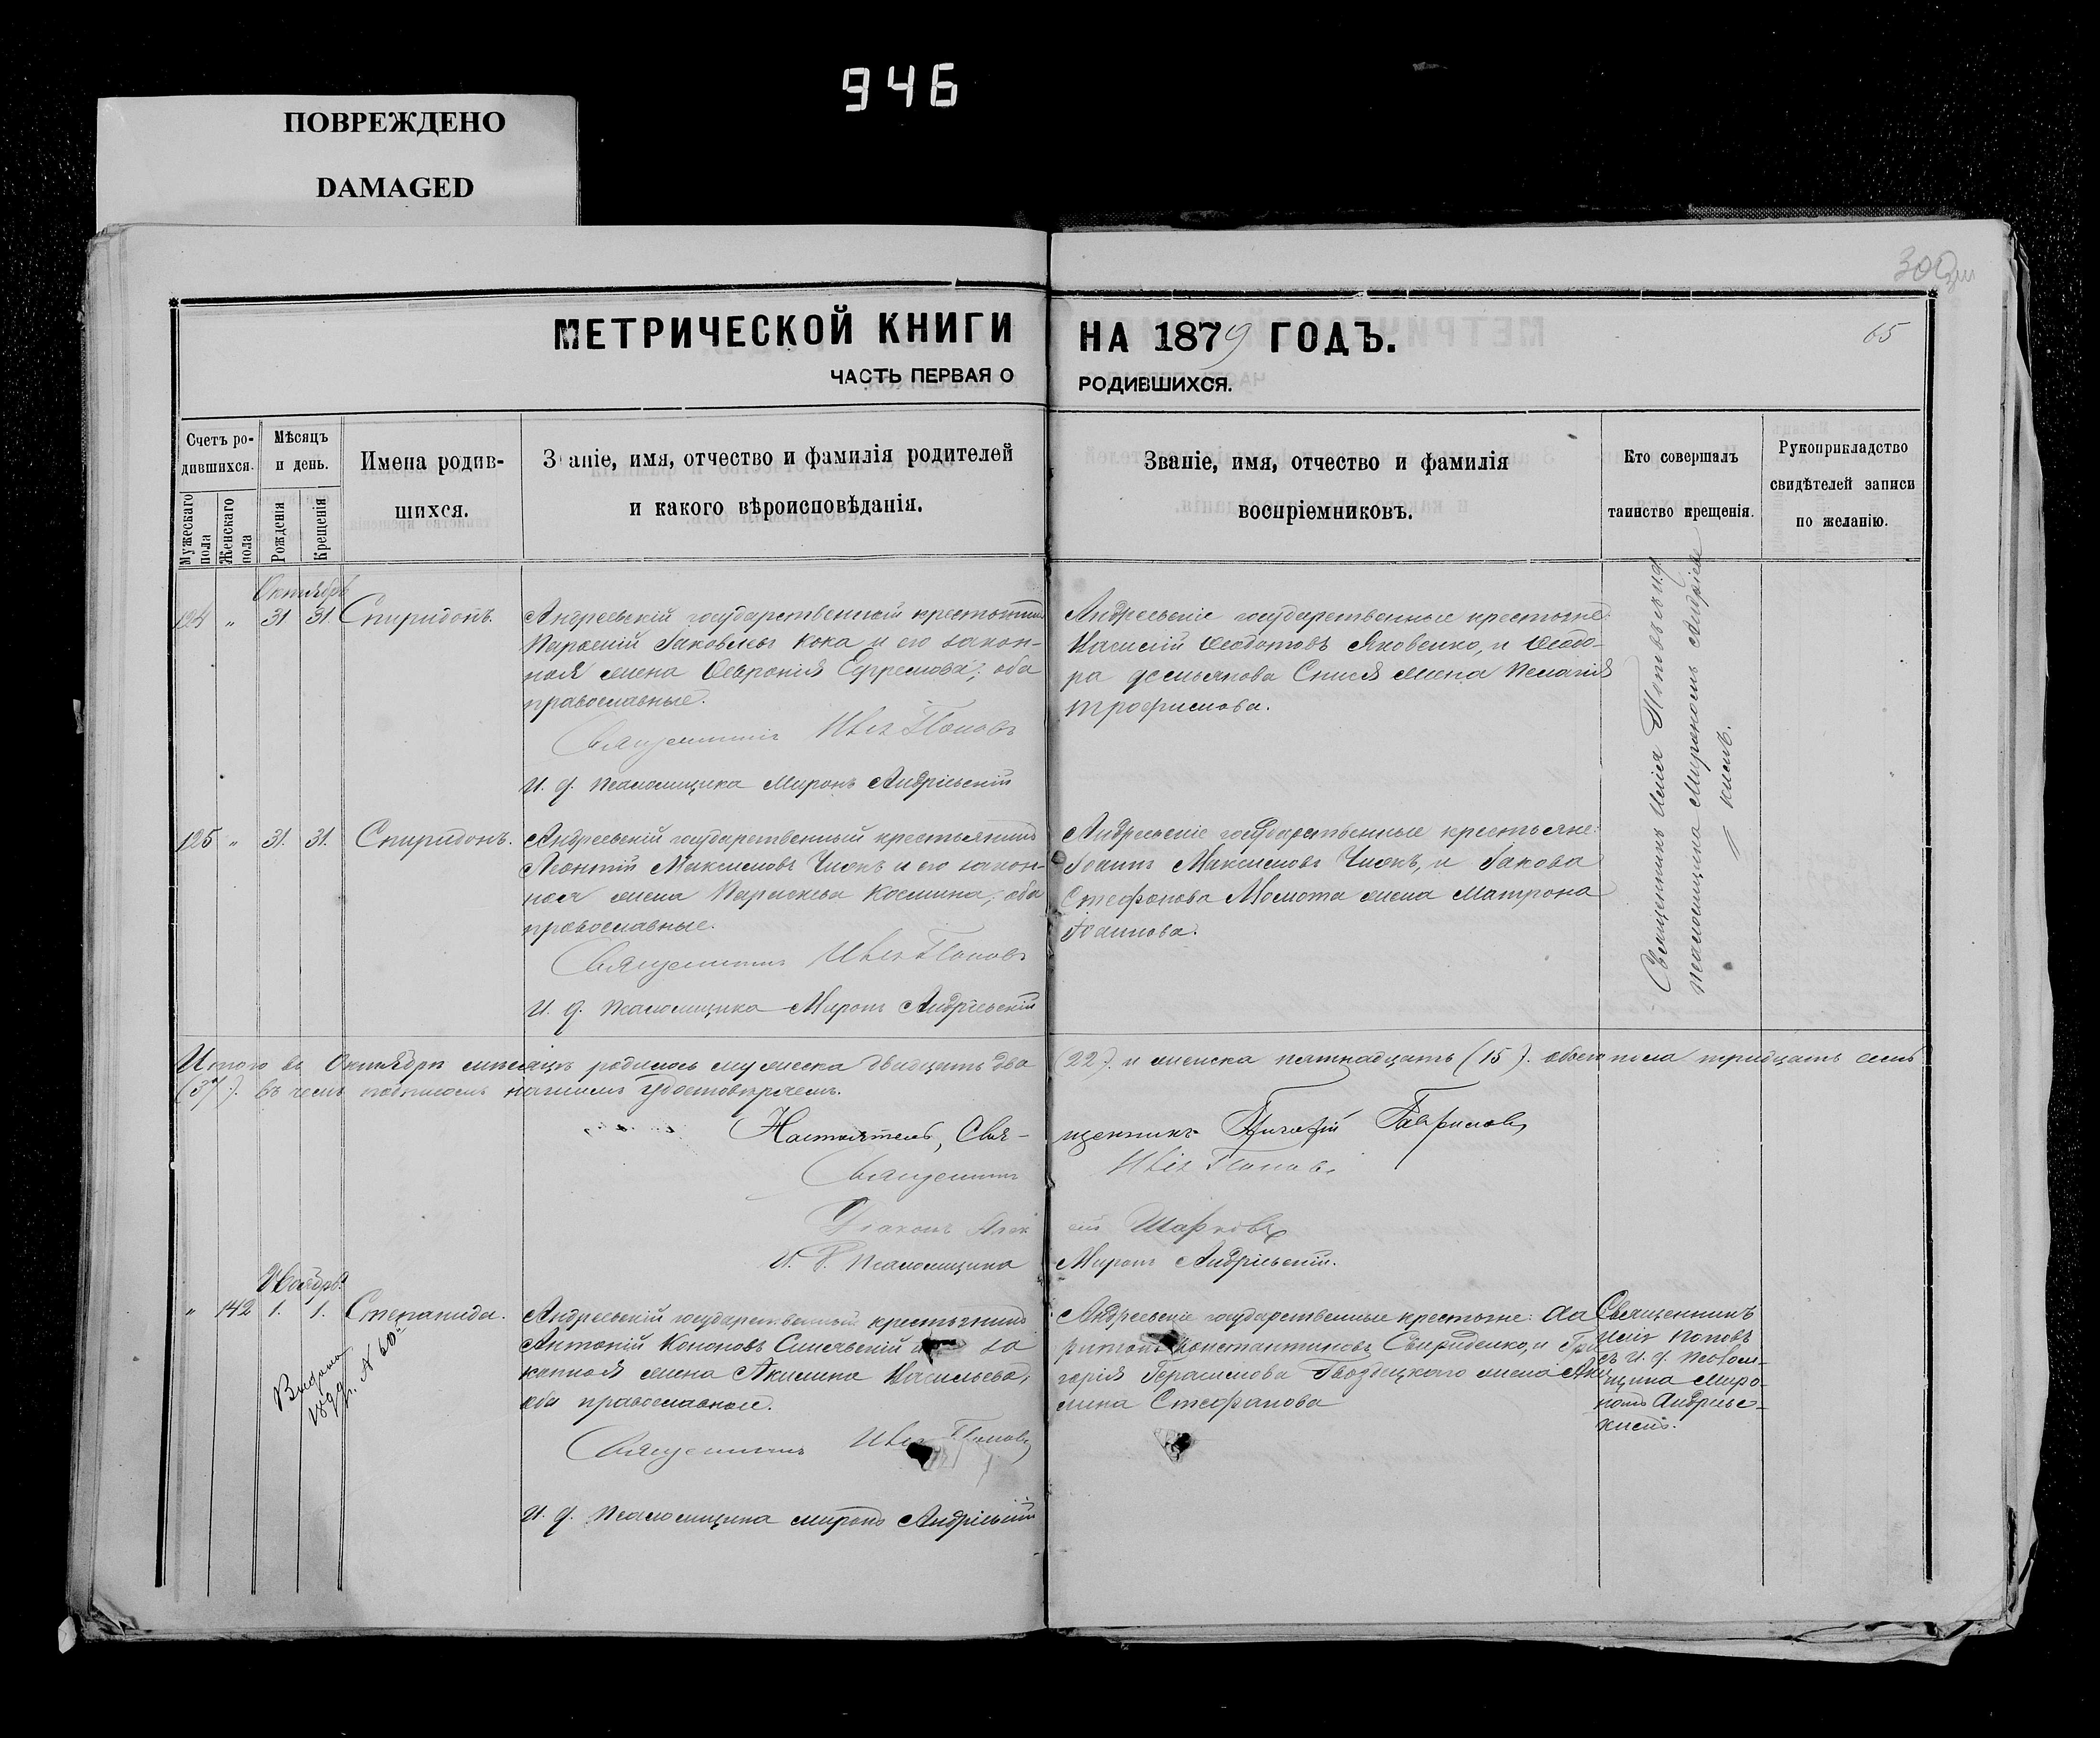 946
ПОВРЕЖДЕНО
DAMAGED
МЕТРИЧЕСКОЙ КНИГИ НА 1879 ГОДЪ.
65
ЧАСТЬ ПЕРВАЯ О РОДИВШИХСЯ.
Счетъ ро-
дившихся.
Мужескаго пола
Женскаго пола
Мѣсяцъ
и день.
Рожденія
Крещенія
Имена родив-
шихся.
З аніе, имя, отчество и фамилія родителей
и какого вѣроисповѣданія.
Званіе, имя, отчество и фамилія
воспріемниковъ.
Кто совершалъ
таинство крещенія.
Рукоприкладство
свидѣтелей записи
по желанію.
Октябрь
124 „ 31 31 Спиридонъ.
Андреевскій государственный крестьянинъ
Парѳеній Іаковлевъ Кока и его закон-
ная жена Ѳевронія Ефремова; оба
православные.
Священникъ Поповъ
И. д. псаломщика Миронъ Андріевскій
Андреевскіе государственные крестьяне:
Ѳеодотовъ Яковенко, и Ѳеодо-
ра жена Пелагія
Трофимова.
Священникъ Илія Поповъ и. д.
псаломщика Мирономъ Андріев
кимъ.
125 „ 31. 31. Спиридонъ.
Андреевскій государственный крестьянинъ
Леонтій Максимовъ Чижъ и его закон-
ная жена Параскева Космина; оба
православные.
Священникъ Поповъ
И. д. псаломщика Миронъ Андріевскій
Андреевскіе государственные крестьяне:
Іоаннъ Максимовъ Чижъ, и Іакова
Стефанова жена Матрона
Іоаннова.
Итого въ Октябрѣ мѣсяцѣ родилось мужеска двадцать два (22). и женска пятнадцать (15). обоего пола тридцать семь
(37). въ чемъ подписомъ нашимъ удостовѣряемъ.
Настоятель, Свя-щенникъ Гавриловъ
Священникъ Поповъ
Діаконъ Шарковъ
И. д. псаломщика Миронъ Андріевскій.
Ноябрь
„ 142 1. 1. Степанида.
Выдана
N 60
Андреевскій государственный крестьянинъ
Антоній Кононовъ Синявскій за
конная жена Акилина Васильева,
оба православные.
Священникъ Поповъ
И. д. псаломщика Миронъ Андріевскій
Андреевскіе государственные крестьяне: Ха
ритонъ Константиновъ Свириденко, и Гри
горія Герасимова Гвоздецкаго жена Аки
лина Стефанова
Священникъ
Илія Поповъ
съ и. д. псалом-
щика Миро-
номъ Андріев-
кимъ.